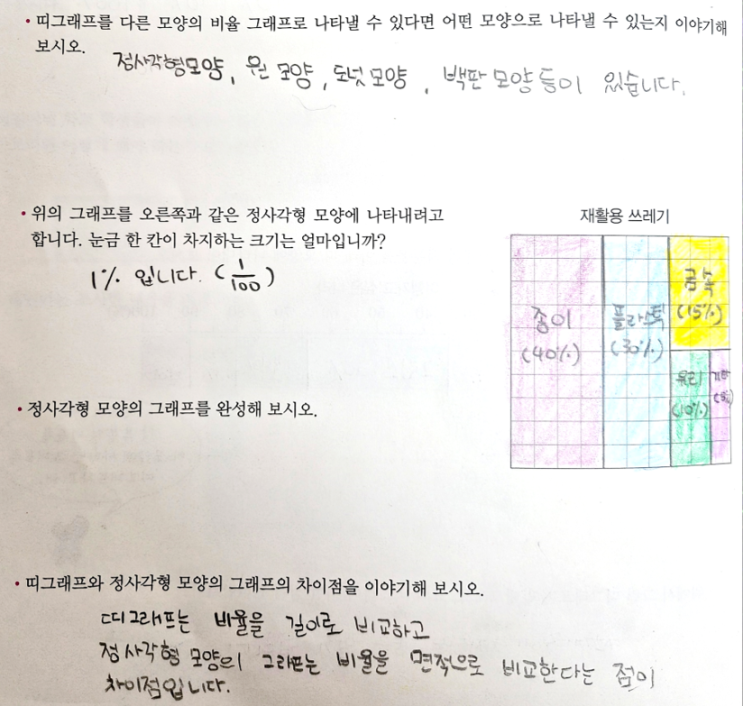 • 띠그래프를 다른 모양의 비율 그래프로 나타낼 수 있다면 어떤 모양으로 나타낼 수 있는지 이야기해
보시오.
정사각형모양, 원 모양, 도넛모양, 백판 모양 등이 있습니다.
• 위의 그래프를 오른쪽과 같은 정사각형 모양에 나타내려고
합니다. 눈금 한 칸이 차지하는 크기는 얼마입니까?
1% 입니다. (1/100)
재활용 쓰레기
종이
(40%)
플라스틱
(30%)
금속
(15%)
유리
(10%)
기타
(5%)
• 정사각형 모양의 그래프를 완성해 보시오.
• 띠그래프와 정사각형 모양의 그래프의 차이점을 이야기해 보시오.
띠그래프는 비율을 길이로 비교하고
정사각형 모양의 그래프는 비율을 면적으로 비교한다는 점이
차이점입니다.